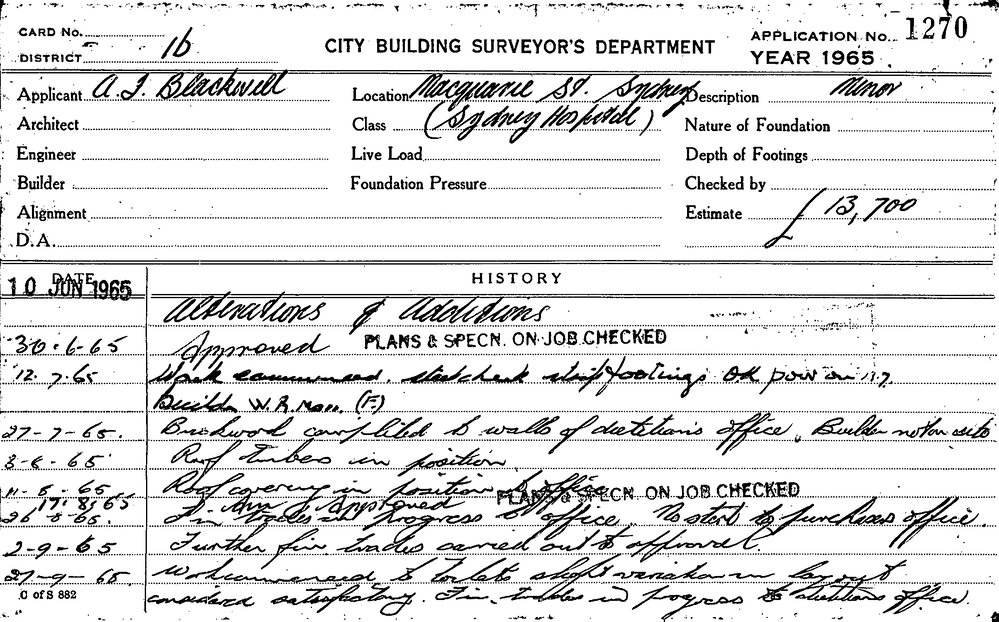 CARD No.
DISTRICT 1b
CITY BUILDING SURVEYOR'S DEPARTMENT
APPLICATION No. 1270
YEAR 1965
Applicant A. J. Blackwell
Location Macquarie St. Sydney
Description Minor
Architect
Class (Sydney Hospital)
Nature of Foundation
Engineer
Live Load
Depth of Footings
Builder
Foundation Pressure
Checked by
Alignment
Estimate £13,700
D.A.
DATE
HISTORY
10 JUN 1965
Alterations & Additions
30.6.65 Approved PLANS & SPECN. ON JOB CHECKED
12.7.65 Work commenced. steel check strip footings OK pour on
Builder W.R. (F.)
27-7-65. Brickwork completed to walls of dietetians office. Builder not on
65 Roof timbers in position
65 Roof covering in position to office
PLANS & SPECN. ON JOB CHECKED
17.8.65 Approved
65. Fin trades in progress to office. No start to purchases office.
2-9-65 Further fin. trades carried out to approval.
27-9-65. Work commenced to toilets slight variation in layout
considered satisfactory. Fin. trades in progress to dietetians office.
C of S 882